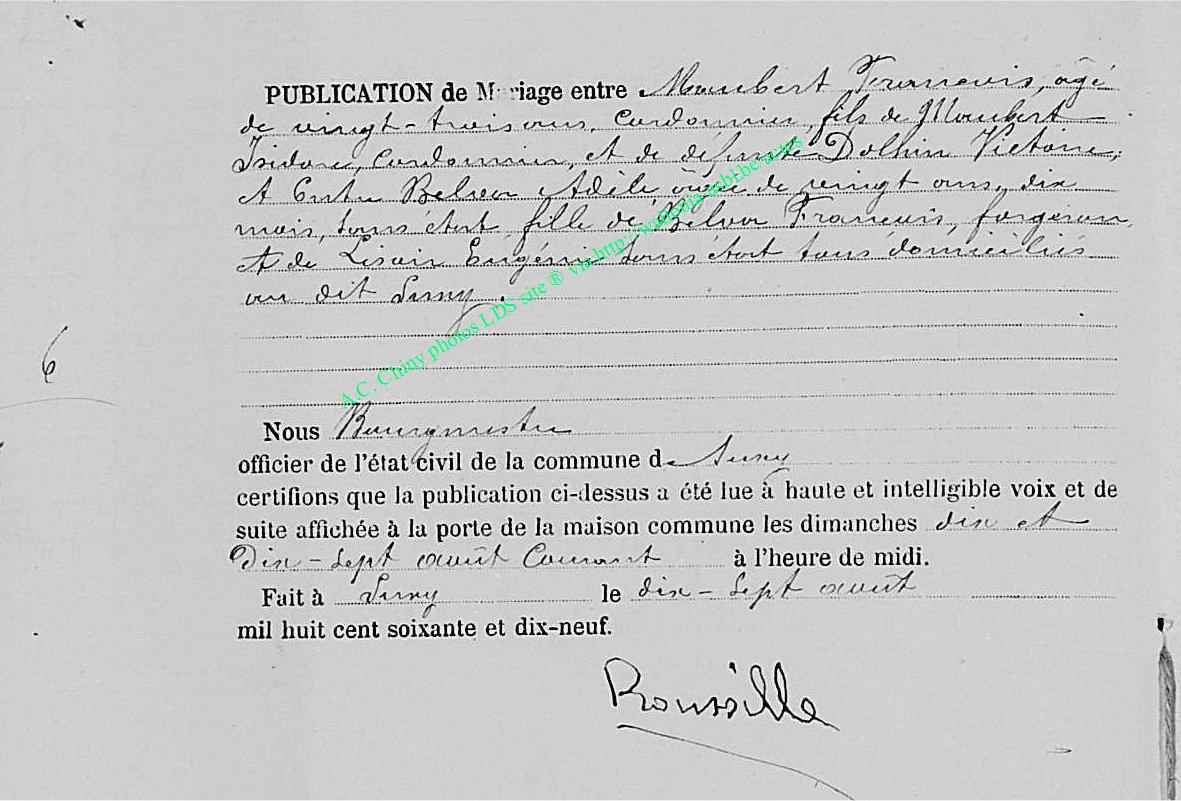 PUBLICATION de Mariage entre Maubert Francois, âgé
de vingt-trois ans, Cordonnier, fils de Maubert
Isidore, Cordonnier, et de défunte Dolhin Victoire,
et Entre Belvor Adèle âgée de vingt ans, dix
mois, sans état, fille de Belvor Francois, forgeron
et de Eugénie sans état tous domiciliés
au dit Suxy.
6
Nous Bourgmestre
officier de l'état civil de la commune de Suxy
certifions que la publication ci-dessus a été lue à haute et intelligible voix et de
suite affichée à la porte de la maison commune les dimanches dix et
Dix-sept août Courant à l'heure de midi.
Fait à Suxy le dix-sept août
mil huit cent soixante et dix-neuf.
Roussille
A.C. Chiny photos LDS site ® via http://wallonia-asbl.be/actes